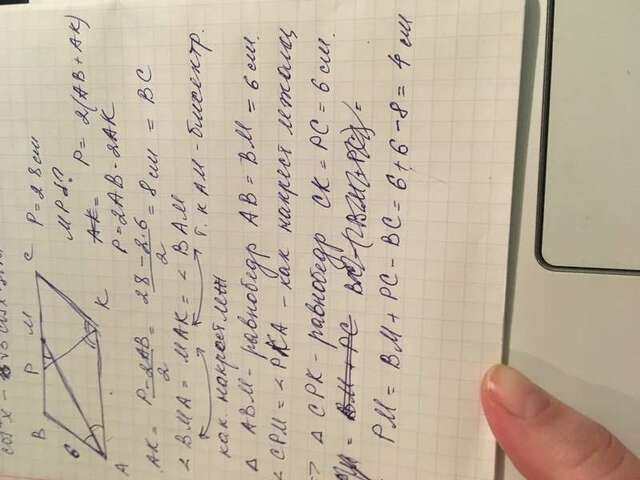 cos²x -
B P M C
6
A K
P = 28 см
MP d?
P = 2(AB + AK)
P = 2AB - 2AK
AK = P - 2AB / 2 = 28 - 2·6 / 2 = 8 см = BC
∠ BMA = MAK = ∠ BAM
как накрест т. к AM - биссектр.
△ ABM - равнобедр AB = BM = 6 см.
∠ CPM = ∠ PKA - как накрест лежащ
=> △ CPK - равнобедр CK = PC = 6 см.
PM = BM + PC - BC = 6 + 6 - 8 = 4 см